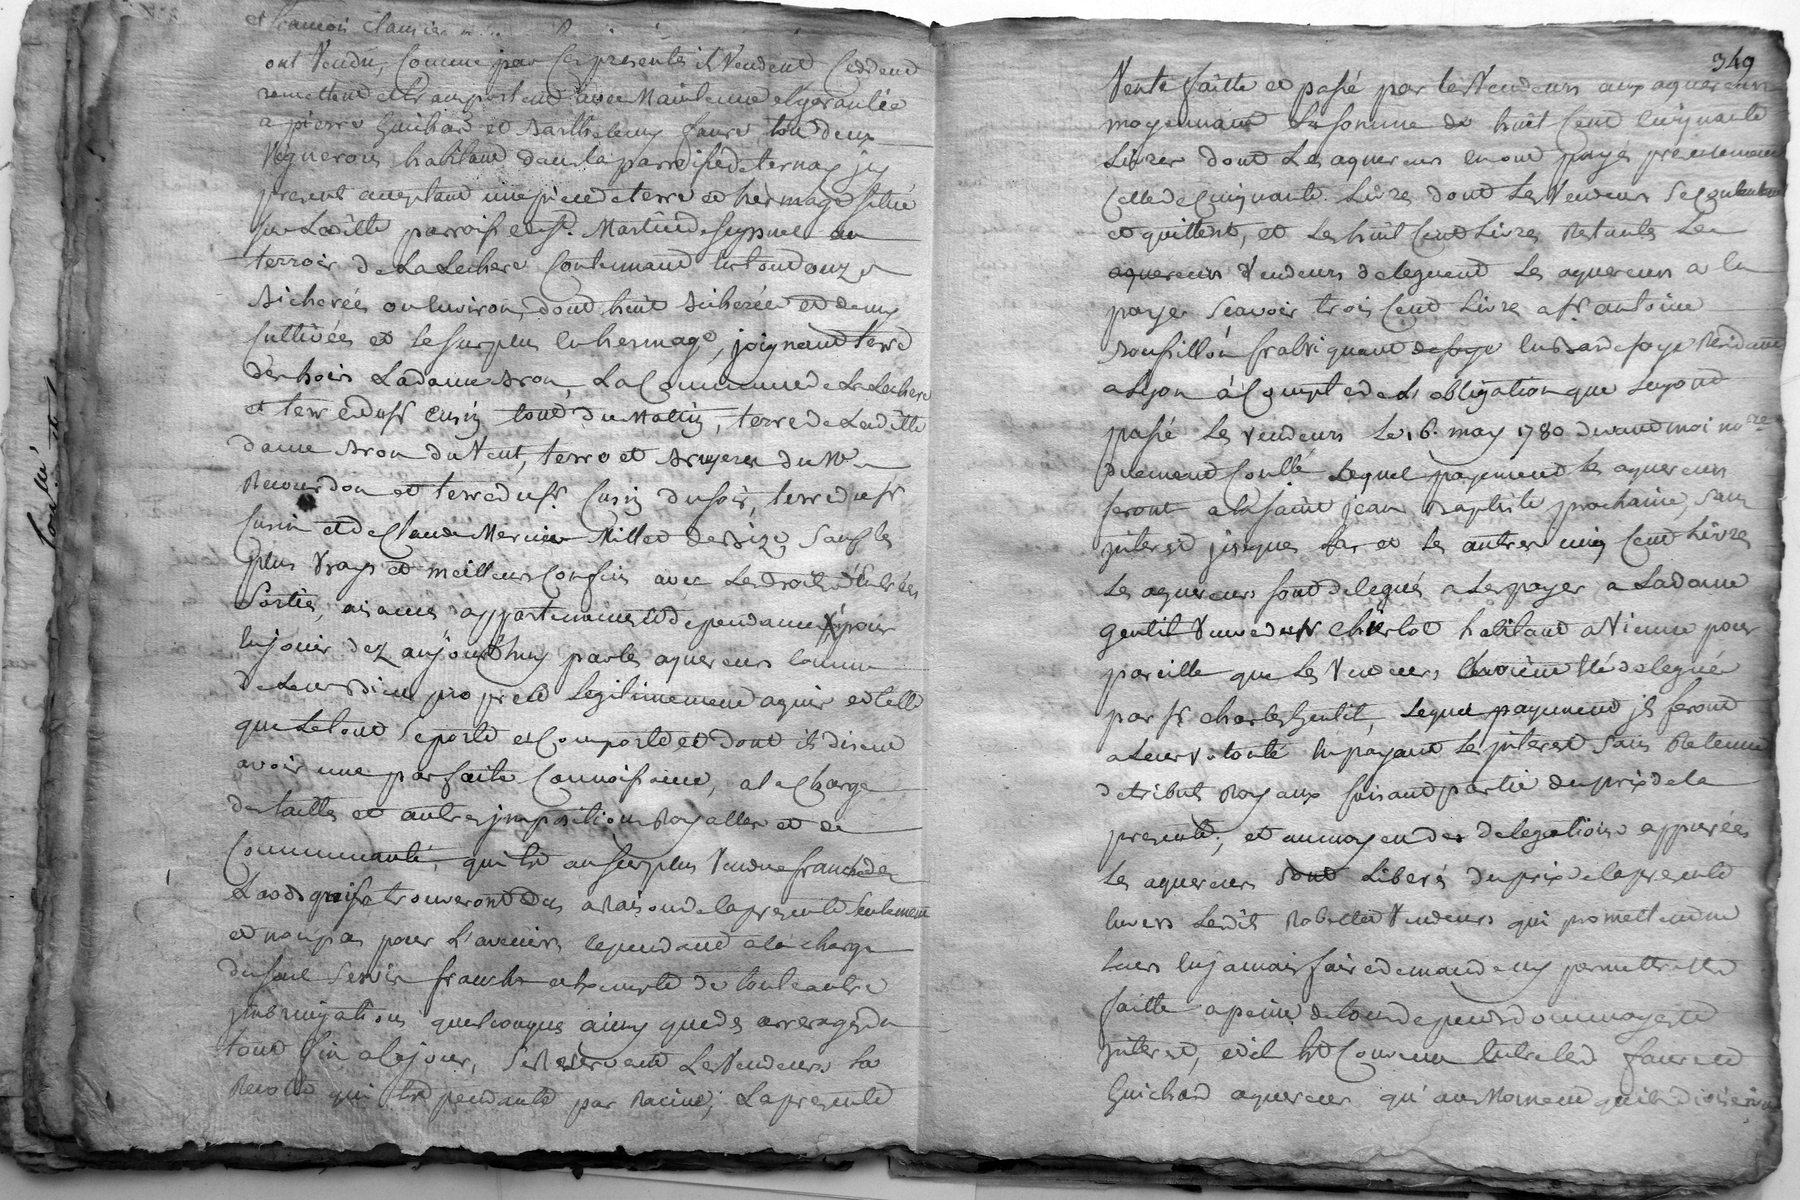 et francois clausier
ont Vendu, Comme par Ces presentes ils Vendent Ceddent
remettent et transportent avec Maintenue et garantie
a pierre Guichard et Barthelemy faure tou deux
Vignerons habitant dans la parroisse de ternay jcy
present acceptant une piece de terre et hermage situé
sur Laditte parroisse de St. Martin de seyssuel au
terroir de La Lechere Contenant le tout onze
bicherées ou Environ, dont huit bicherée et demy
Cultivées et Le surplus En hermage, joignant terre
des hoirs Ladame Bron, La Commune de La Lechere
et terre du sr Cusin tout du Matin, terre de Laditte
dame Bron du Vent, terre et bruyeres du Mr
Revourdon et terre du sr. Cusin du soir, terre du sr
Cusin et de Claude Mercier Millet de bize, Sauf les
plus Vrays et meilleurs Confins avec Les droits d'Entrées
Sorties, aisances appartenances et dependances pour
En jouir dez aujourd'huy par les aquereurs Comme
de Leur Bien propre et Legitimement aquis et telle
que Le tout Se porte et Comporte et dont ils disent
avoir une parfaite Connoissance, a la Charge
des tailles et autres jmpositions Royalles et de
Communauté, qui Est au surplus Vendue franche des
Laods qui se trouveront dus a Raison de la presente Seulement
et non pas pour L'avenir, Cependant a la charge
du seul Servis franche et Exempte de toute autre
jmbringations quelconques ainsy que des arrerages du
tout jusqu'a ce jour, Se Reservent Les Vendeurs La
Recolte qui Est pendante par Racine; La presente
349
Vente faitte et passé par les Vendeurs aux aquereurs
moyennant La somme de huit Cent Cinquante
Livres dont Les aquereurs En ont payés presentement
Celle de Cinquante Livres dont Les Vendeurs Se Contentent
et quittent, et Les huit Cent Livres Restantes Les
aquereurs Vendeurs deleguent Les aquereurs a la
payer Scavoir trois Cent Livre a sr. antoine
Roussillon fabriquant de soye En bas de soye Residant
a Lyon à Compte de L'obligation que Luy ont
passé Les Vendeurs Le 16. may 1780 devant moi nore
duement Conllé Lequel payement Les aquereurs
feront a la saint jean Baptiste prochaine, Sans
jnterest jusques Lar et Les autres cinq Cent Livres
Les aquereurs sont delegués a Les payer a Ladame
gentil Veuve du sr Charlot habitant a Vienne pour
pareille que Les Vendeurs Eté delegué
par sr Charles Gentil, Lequel payement jls feront
a Leur volonté En payant Les jnterest Sans Retenue
de tributs Royaux faisant partie du prix de la
presente, et au moyen des delegations appurées
Les aquereurs Sont Liberés du prix de la presente
Envers Lesdits Robelled Vendeurs qui promettent ne
Leurs En jamais faire demande ny permettre Estre
faitte a peine de tous depens dommages et
jnterest, et il Est Convenu Entre Les faure et
Guichard aquereurs qu'au Moment qu'ils diviseront
Conllé